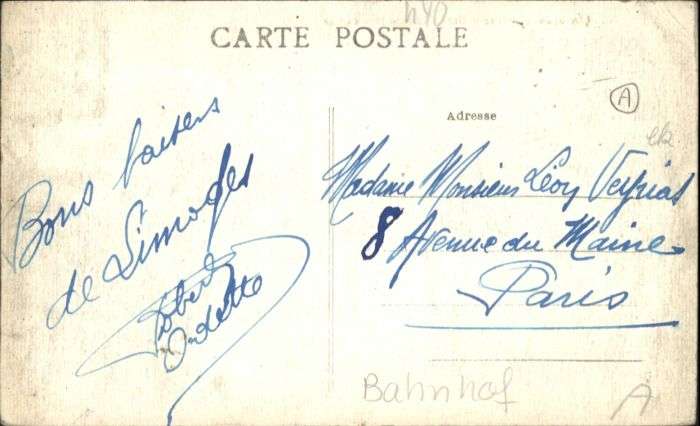 h40
CARTE POSTALE
A
Adresse
ek
Bons baisers
de Limoges
Robert
Odette
Madame Monsieur Léon Veyriat
8 Avenue du Maine
Paris
Bahnhof
A